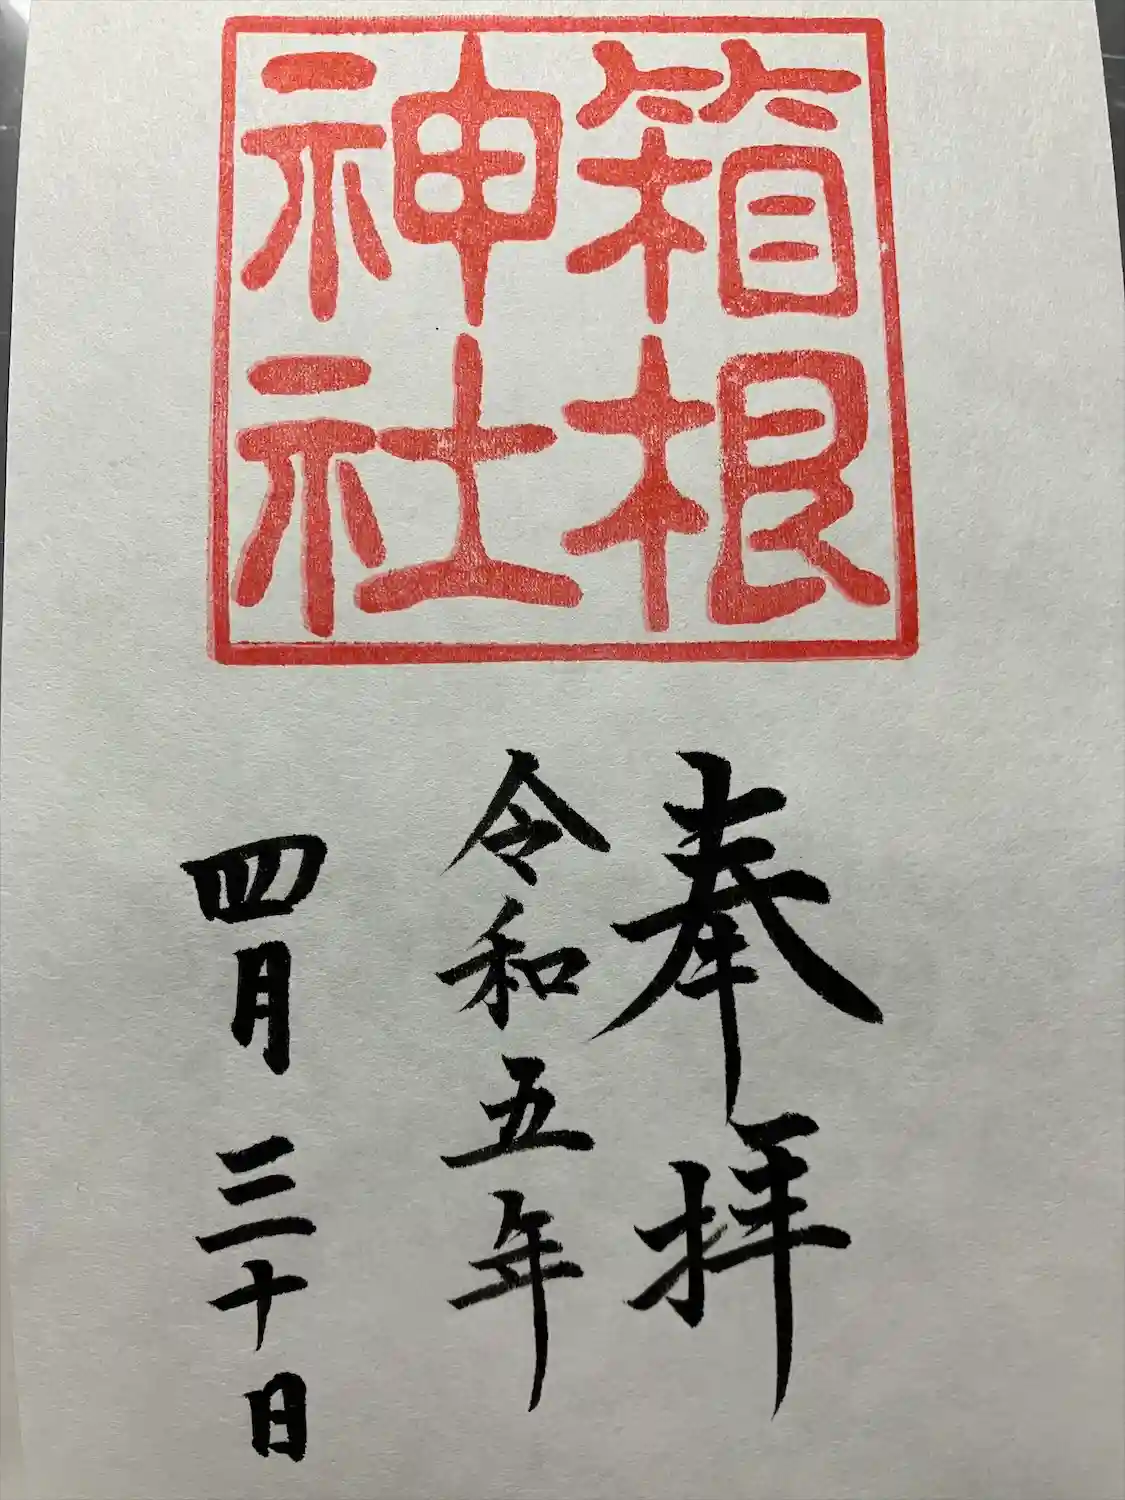 箱根
神社
奉拝
令和五年
四月三十日